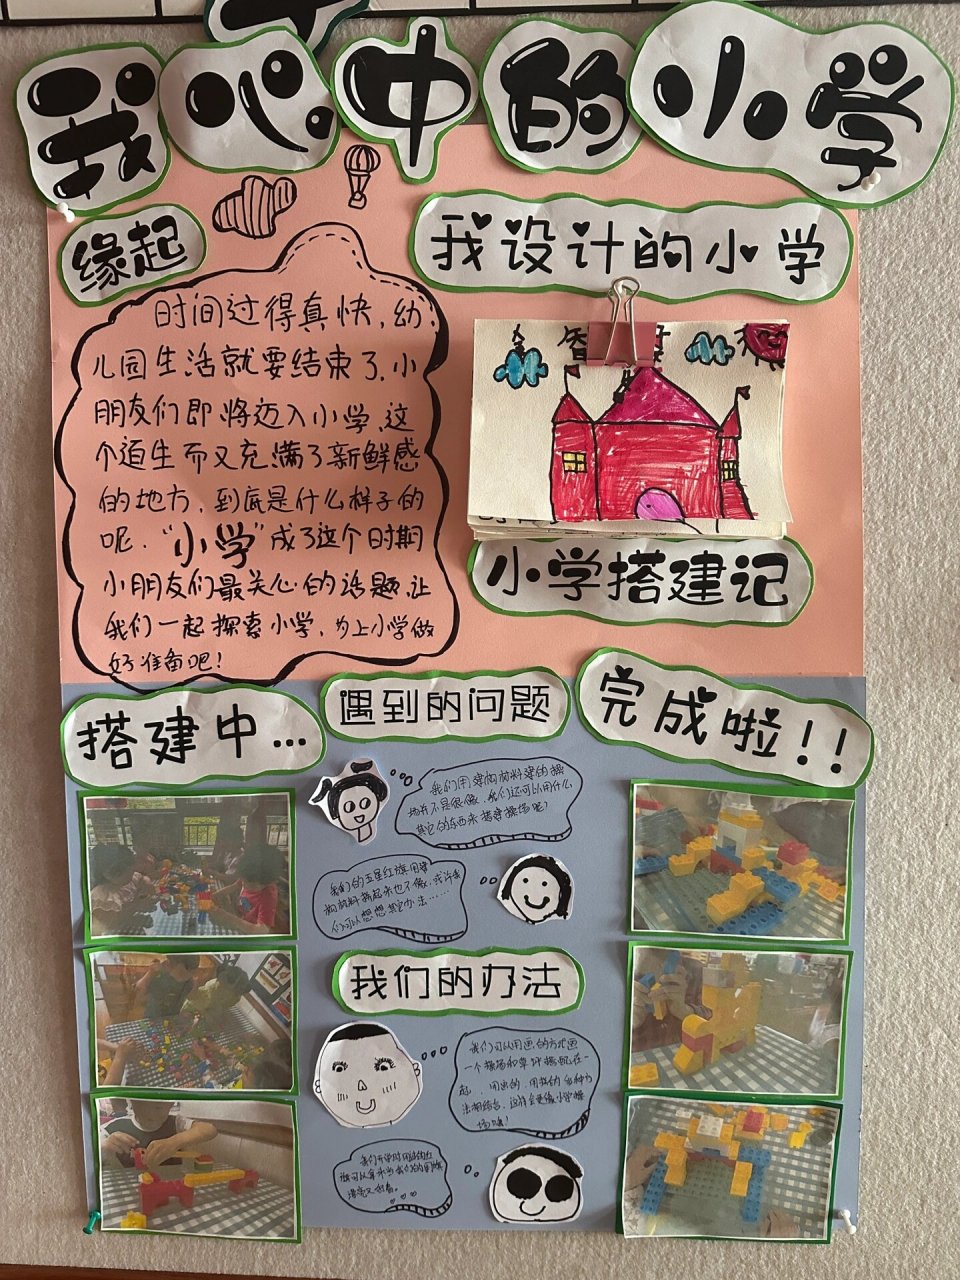 我心中的小学
缘起
时间过得真快,幼
儿园生活就要结束了,小
朋友们即将迈入小学,这
个陌生而又充满了新鲜感
的地方,到底是什么样子的
呢,“小学”成了这个时期
小朋友们最关心的话题,让
我们一起探索小学,为上小学做
好准备吧!
我设计的小学
小学搭建记
搭建中...
遇到的问题
我们用建构材料建的操
场并不是很像,我们还可以用什么
其它的东西来搭建操场呢?
我们的五星红旗用建
构材料搭起来也不像,或许我
们可以想想其它办法……
我们的办法
我们可以用画的方式画
一个操场和草坪搭配在一
起,用画的,用搭的各种方
法相结合,这样会更像小学操
场哦!
漂亮又好看。
完成啦!!